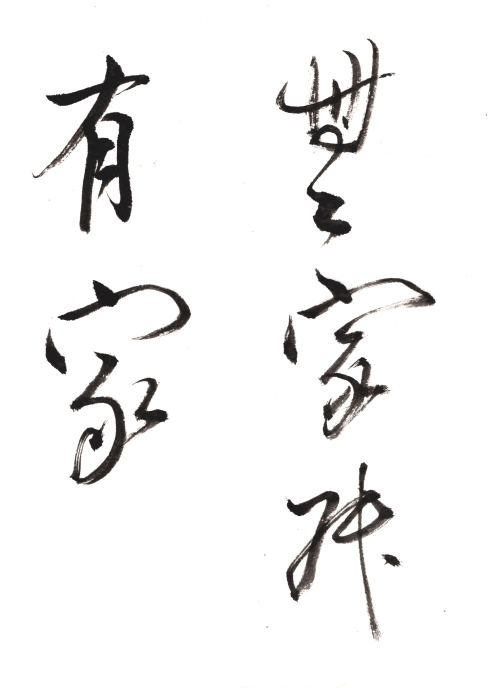 無家
有家